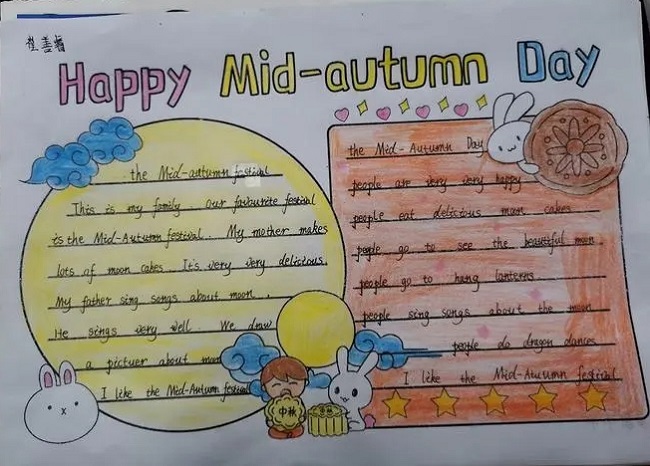 Happy Mid-autumn Day
the Mid-autumn festival
This is my family. Our favourite festival
is the Mid-Autumn festival. My mother makes
lots of moon cakes. It's very very delicious.
My father sing songs about moon.
He sings very well. We draw
a pictuer about moon
I like the Mid-Autumn festival
the Mid-Autumn Day
people are very very happy
people eat delicious moon cakes
people go to see the beautiful moon
people go to hang lanterns
people sing songs about the moon
people do dragon dances
I like the Mid-Autumn festival
中秋